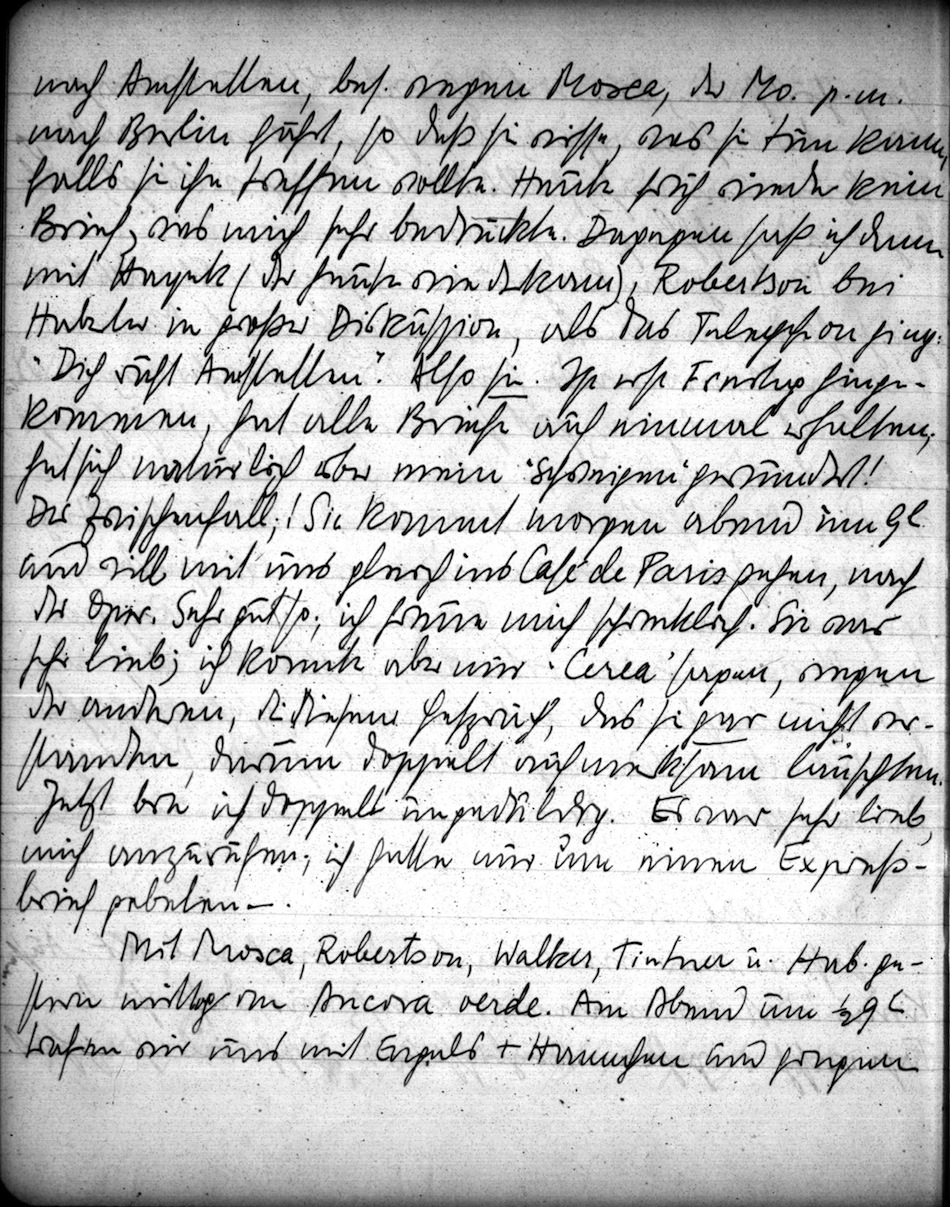 nach Amstetten, bes. wegen Mosca, der Mo. p.m.
nach Berlin fährt, so daß sie wisse, was sie tun kann,
falls sie ihn treffen wollte. Heute früh wieder kein
Brief, was mich sehr bedrückte. Dagegen saß ich dann
mit Hayek (der heute wiederkam), Robertson bei
Haberler in großer Diskussion, als das Telephon ging:
"Dich ruft Amstetten". Also sie. Ist erst Freitag hinge-
kommen, hat alle Briefe auf einmal erhalten,
hat sich natürlich über mein "Schweigen" gewundert!
Der Zwischenfall,! Sie kommt morgen abend um 9h
und will mit uns gleich ins Café de Paris gehen, nach
der Oper. Sehr gut so; ich freue mich schrecklich. Sie war
sehr lieb; ich konnte aber nur "Cerea" sagen, wegen
der anderen, die diesem Gespräch, das sie gar nicht ver-
standen, darum doppelt aufmerksam lauschten.
Jetzt bin ich doppelt ungeduldig. Es war sehr lieb,
mich anzurufen; ich hatte nur um einen Expreß-
brief gebeten—.
Mit Mosca, Robertson, Walker, Tintner u. Hab. ge-
stern mittag im Ancora verde. Am Abend um ½9h
trafen wir uns mit Engels + Hannchen und gingen